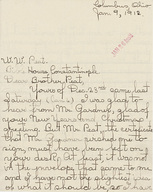 Columbus, Ohio
Jan. 9, 1912
W. W. Peet,
House, Constantinople
Dear Brother Peet,
Yours of Dec. 23rd came last
Saturday. I was glad to
hear from Mr. Gardner, glad of
your New Year's and Christmas
greeting. But Mr. Peet, the certificate
that Mr. wished me to
sign, must have been left on
your desk, at least it was not
in the envelope that came to me
and I have not the slightest idea
of what it should be, so I have